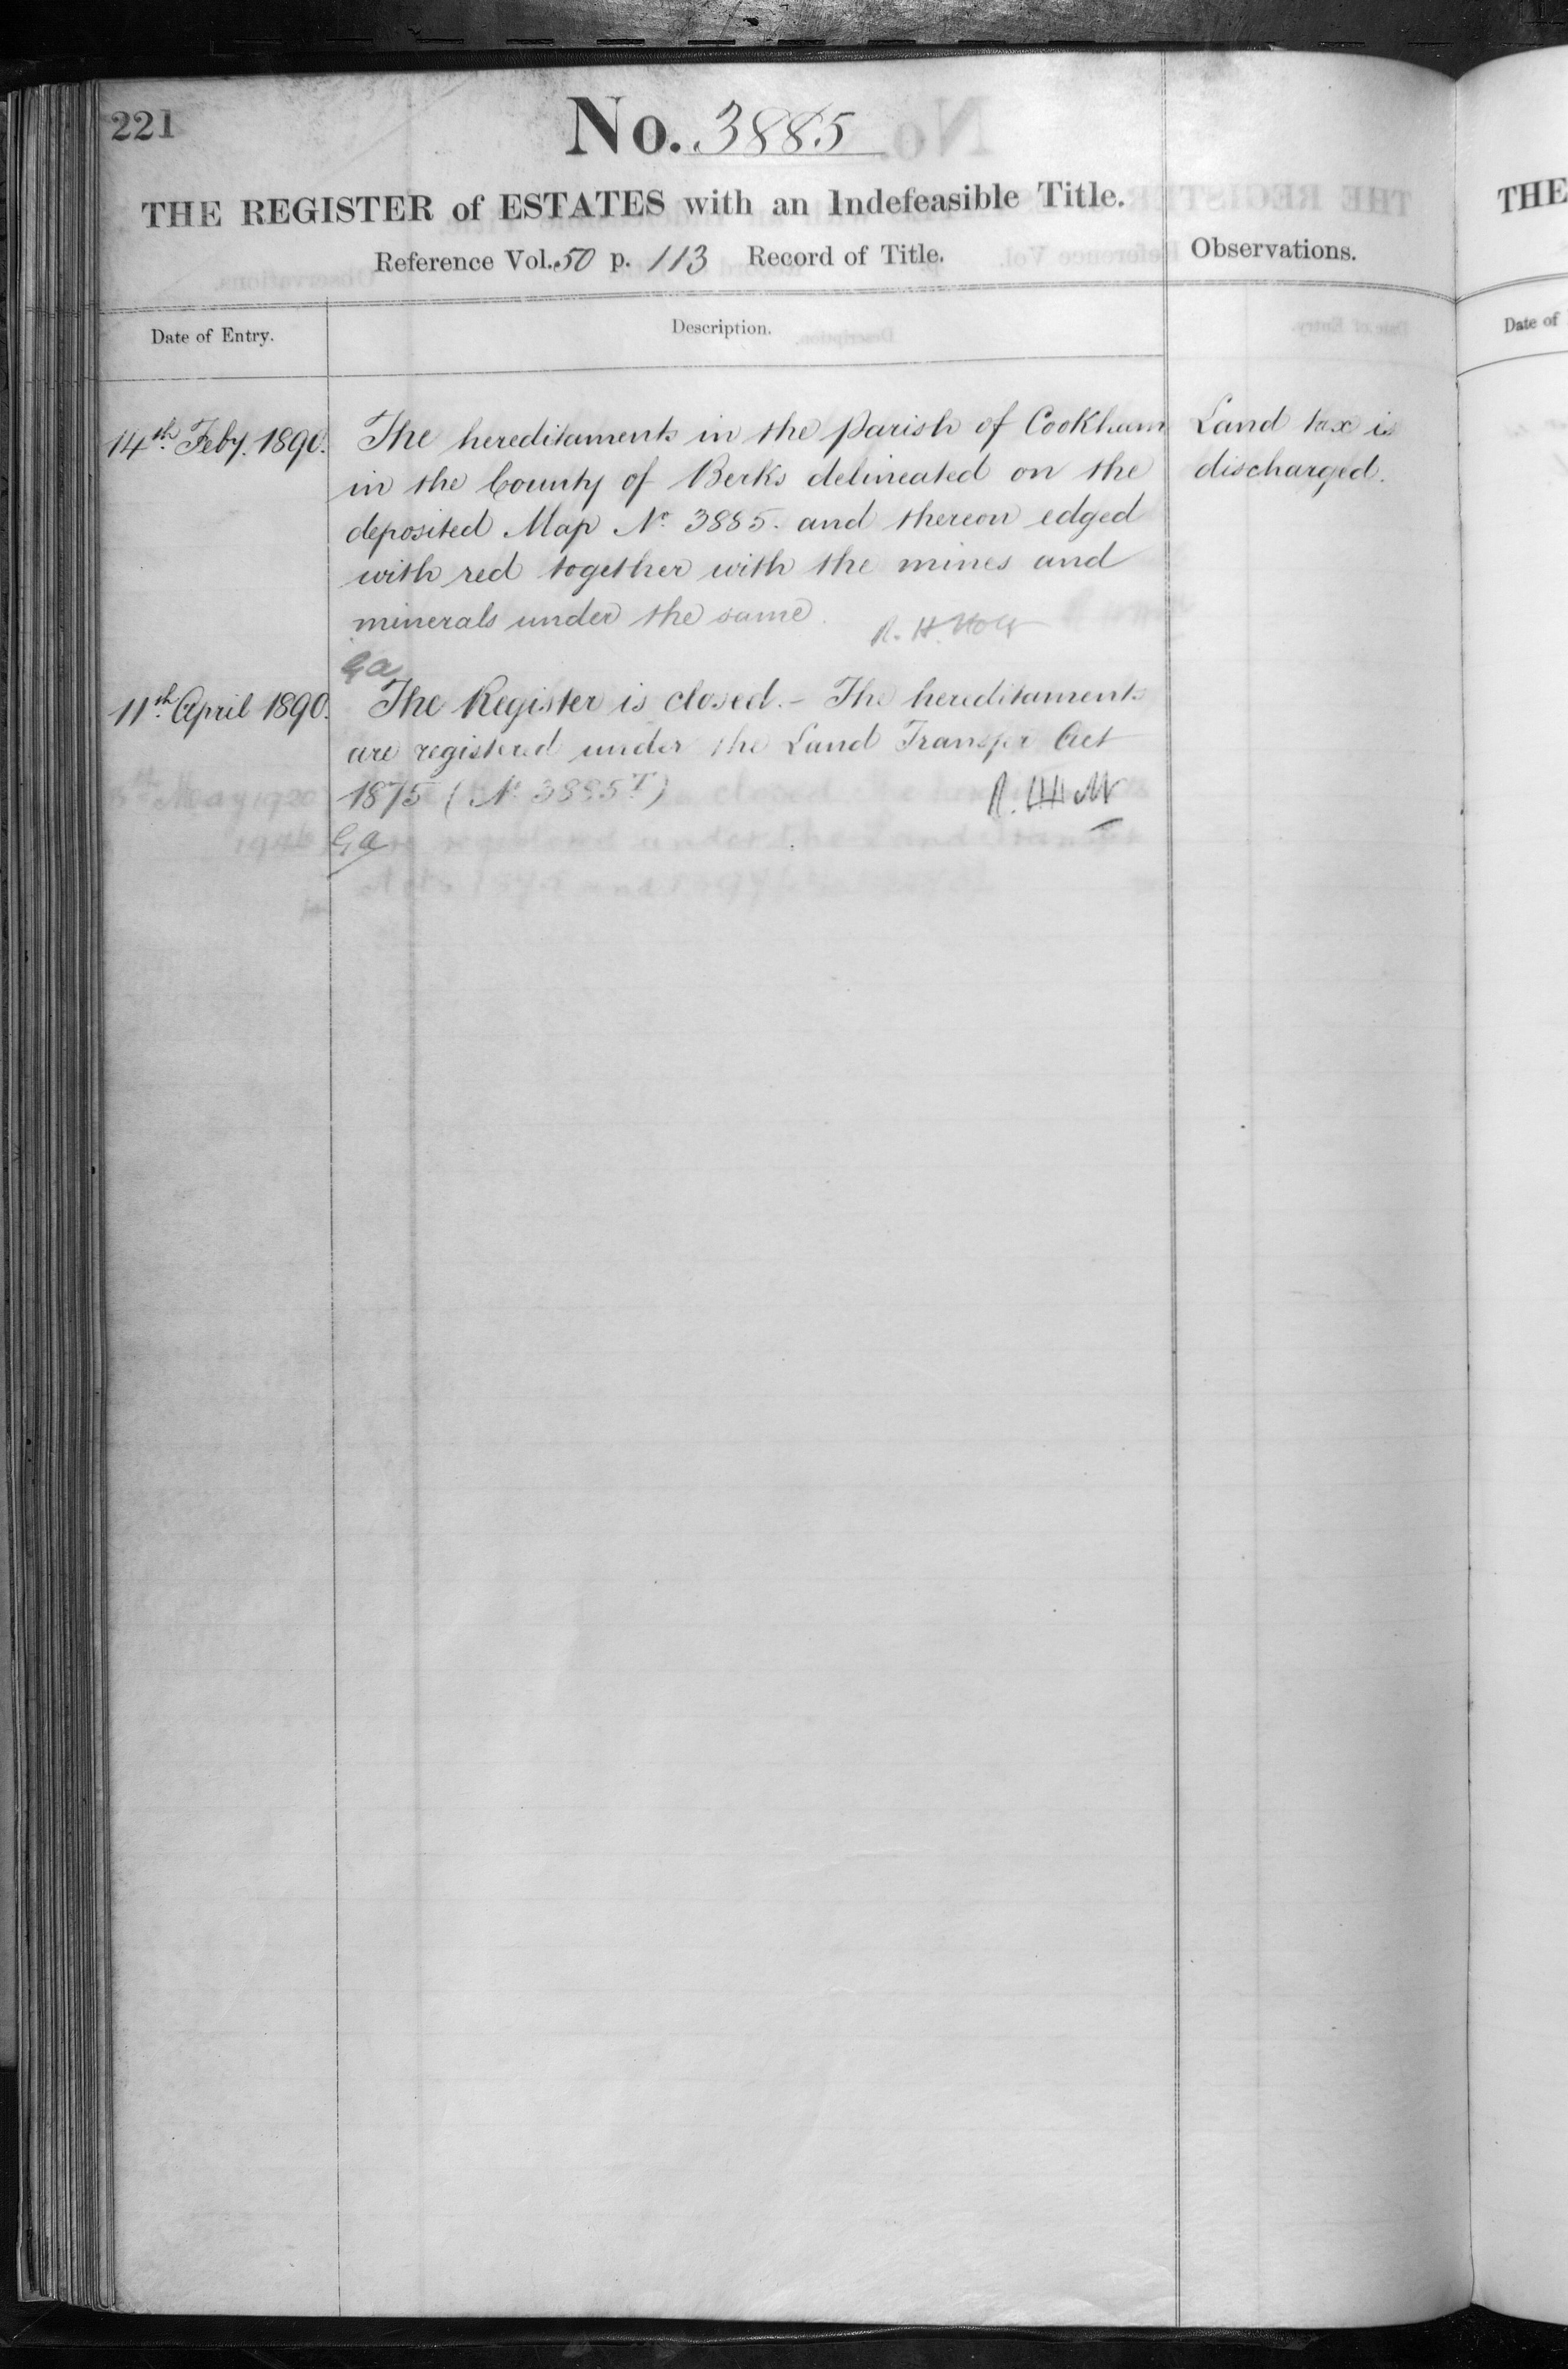 221
No. 3885
THE REGISTER of ESTATES with an Indefeasible Title.
Reference Vol. 50 p. 113 Record of Title.
Observations.
Date of Entry.
Description.
14th Feby. 1890.
The hereditaments in the parish of Cookham
in the County of Berks delineated on the
deposited Map No. 3885. and thereon edged
with red together with the mines and
minerals under the same.
R. H. Holt
Land tax is
discharged.
Ga
11th April 1890.
The Register is closed. – The hereditaments
are registered under the Land Transfer Act
1875 (No. 3885T)
Ga
THE
Date of